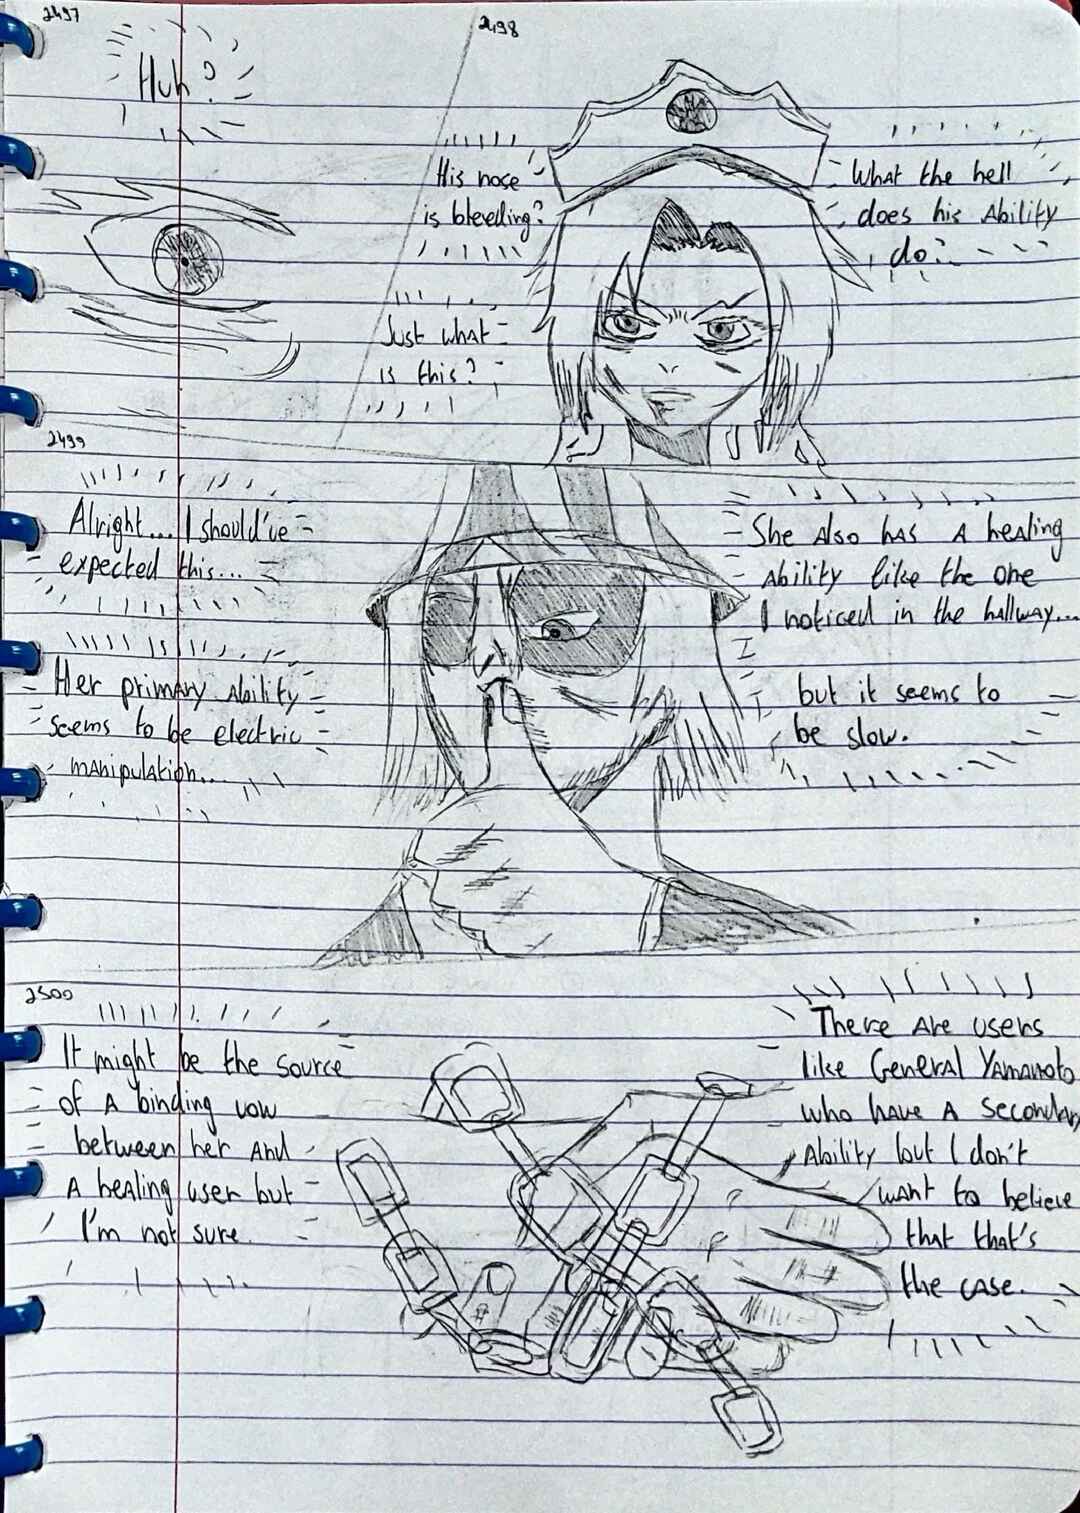 2497
Huh?
2498
His nose
is bleeding?
Just what
is this?
What the hell
does his Ability
do?
2499
Alright... I should've
expected this...
Her primary Ability
seems to be electric
manipulation...
She Also has A healing
Ability like the one
I noticed in the hallway...
but it seems to
be slow.
2500
It might be the source
of A binding vow
between her And
A healing user but
I'm not sure.
There Are users
like General Yamamoto
who have A secondary
Ability but I don't
want to believe
that that's
the case.